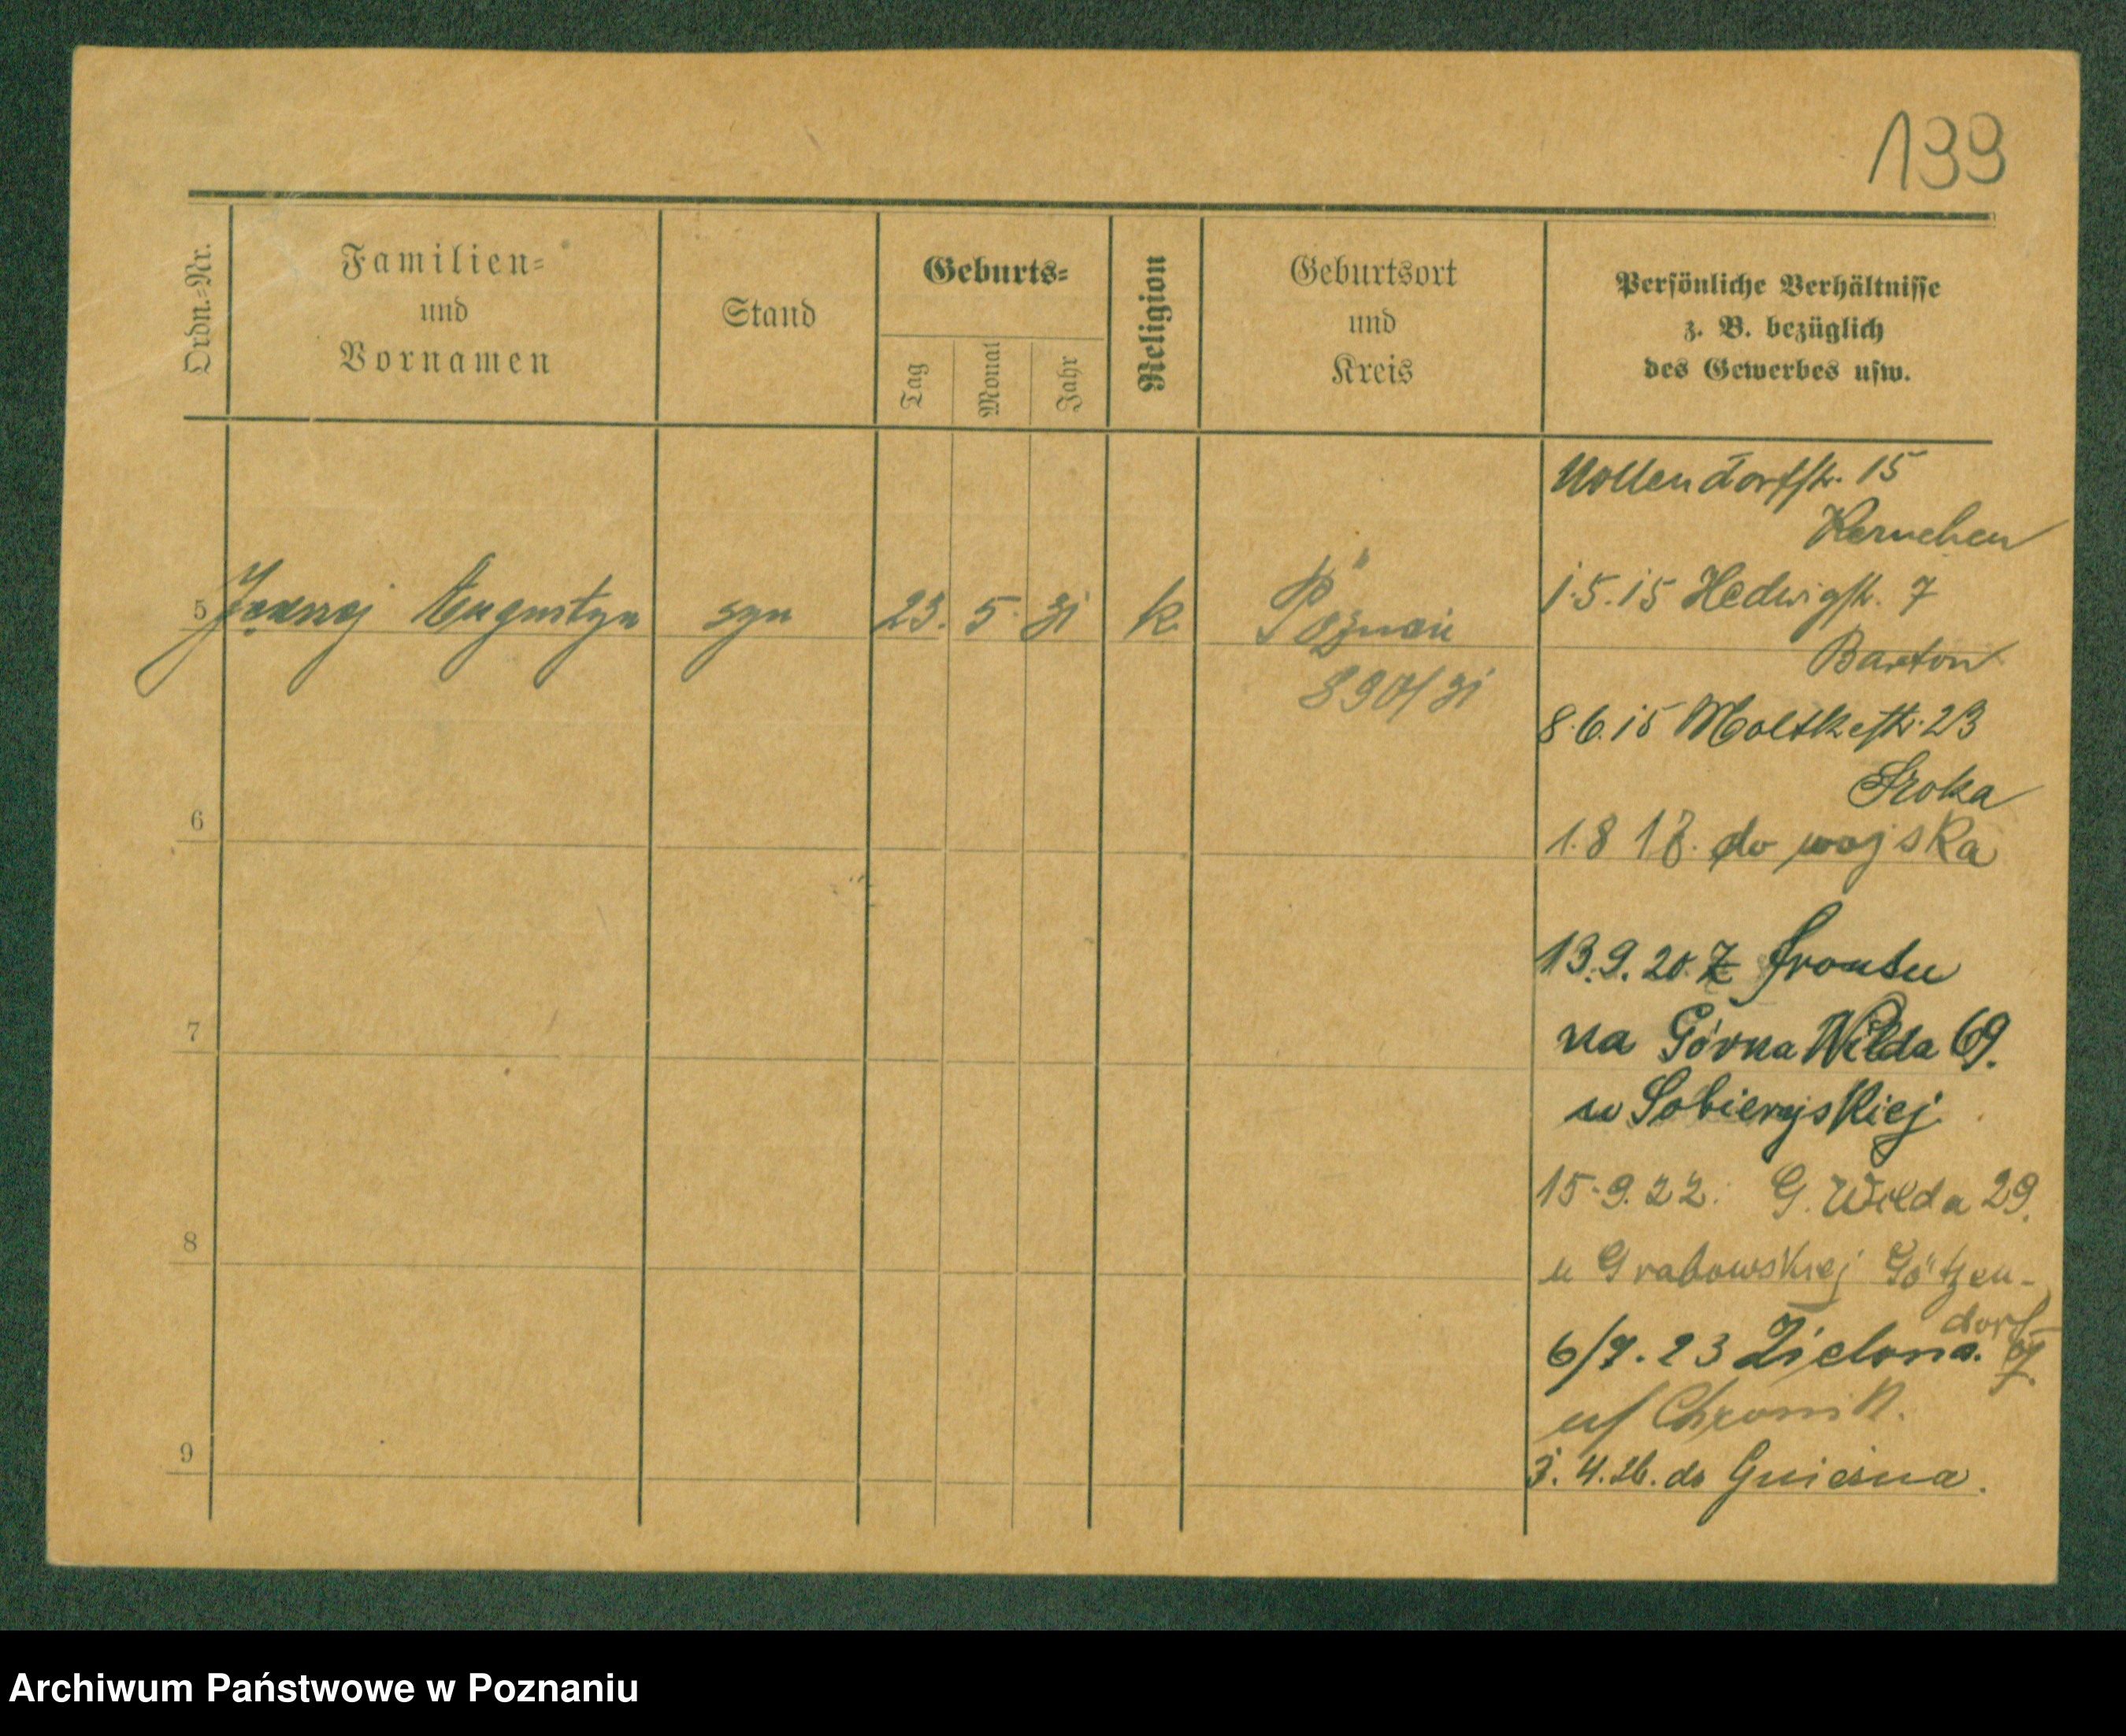 199
Ordn.=Nr.
Familien=
und
Vornamen
Stand
Geburts=
Tag
Monat
Jahr
Religion
Geburtsort
und
Kreis
Persönliche Verhältnisse
z. B. bezüglich
des Gewerbes usw.
Nollendorfstr. 15
Kernchen
5 Augustyn syn 23. 5. 31 k. Poznań
890/31
1.5.15 Hedwigstr. 7
Barton
8.6.15 Moltkestr. 23
Sroka
6
1.8 18. do wojska
13.9.20. Z frontu
7
na Górna Wilda 69.
u Sobierajskiej
15.9.22. G. Wilda 29.
8
u Grabowskiej Götzen-
dorf
6/7.23 Zielona.
u/ Chronik.
9
3.4.26. do Gniezna.
Archiwum Państwowe w Poznaniu